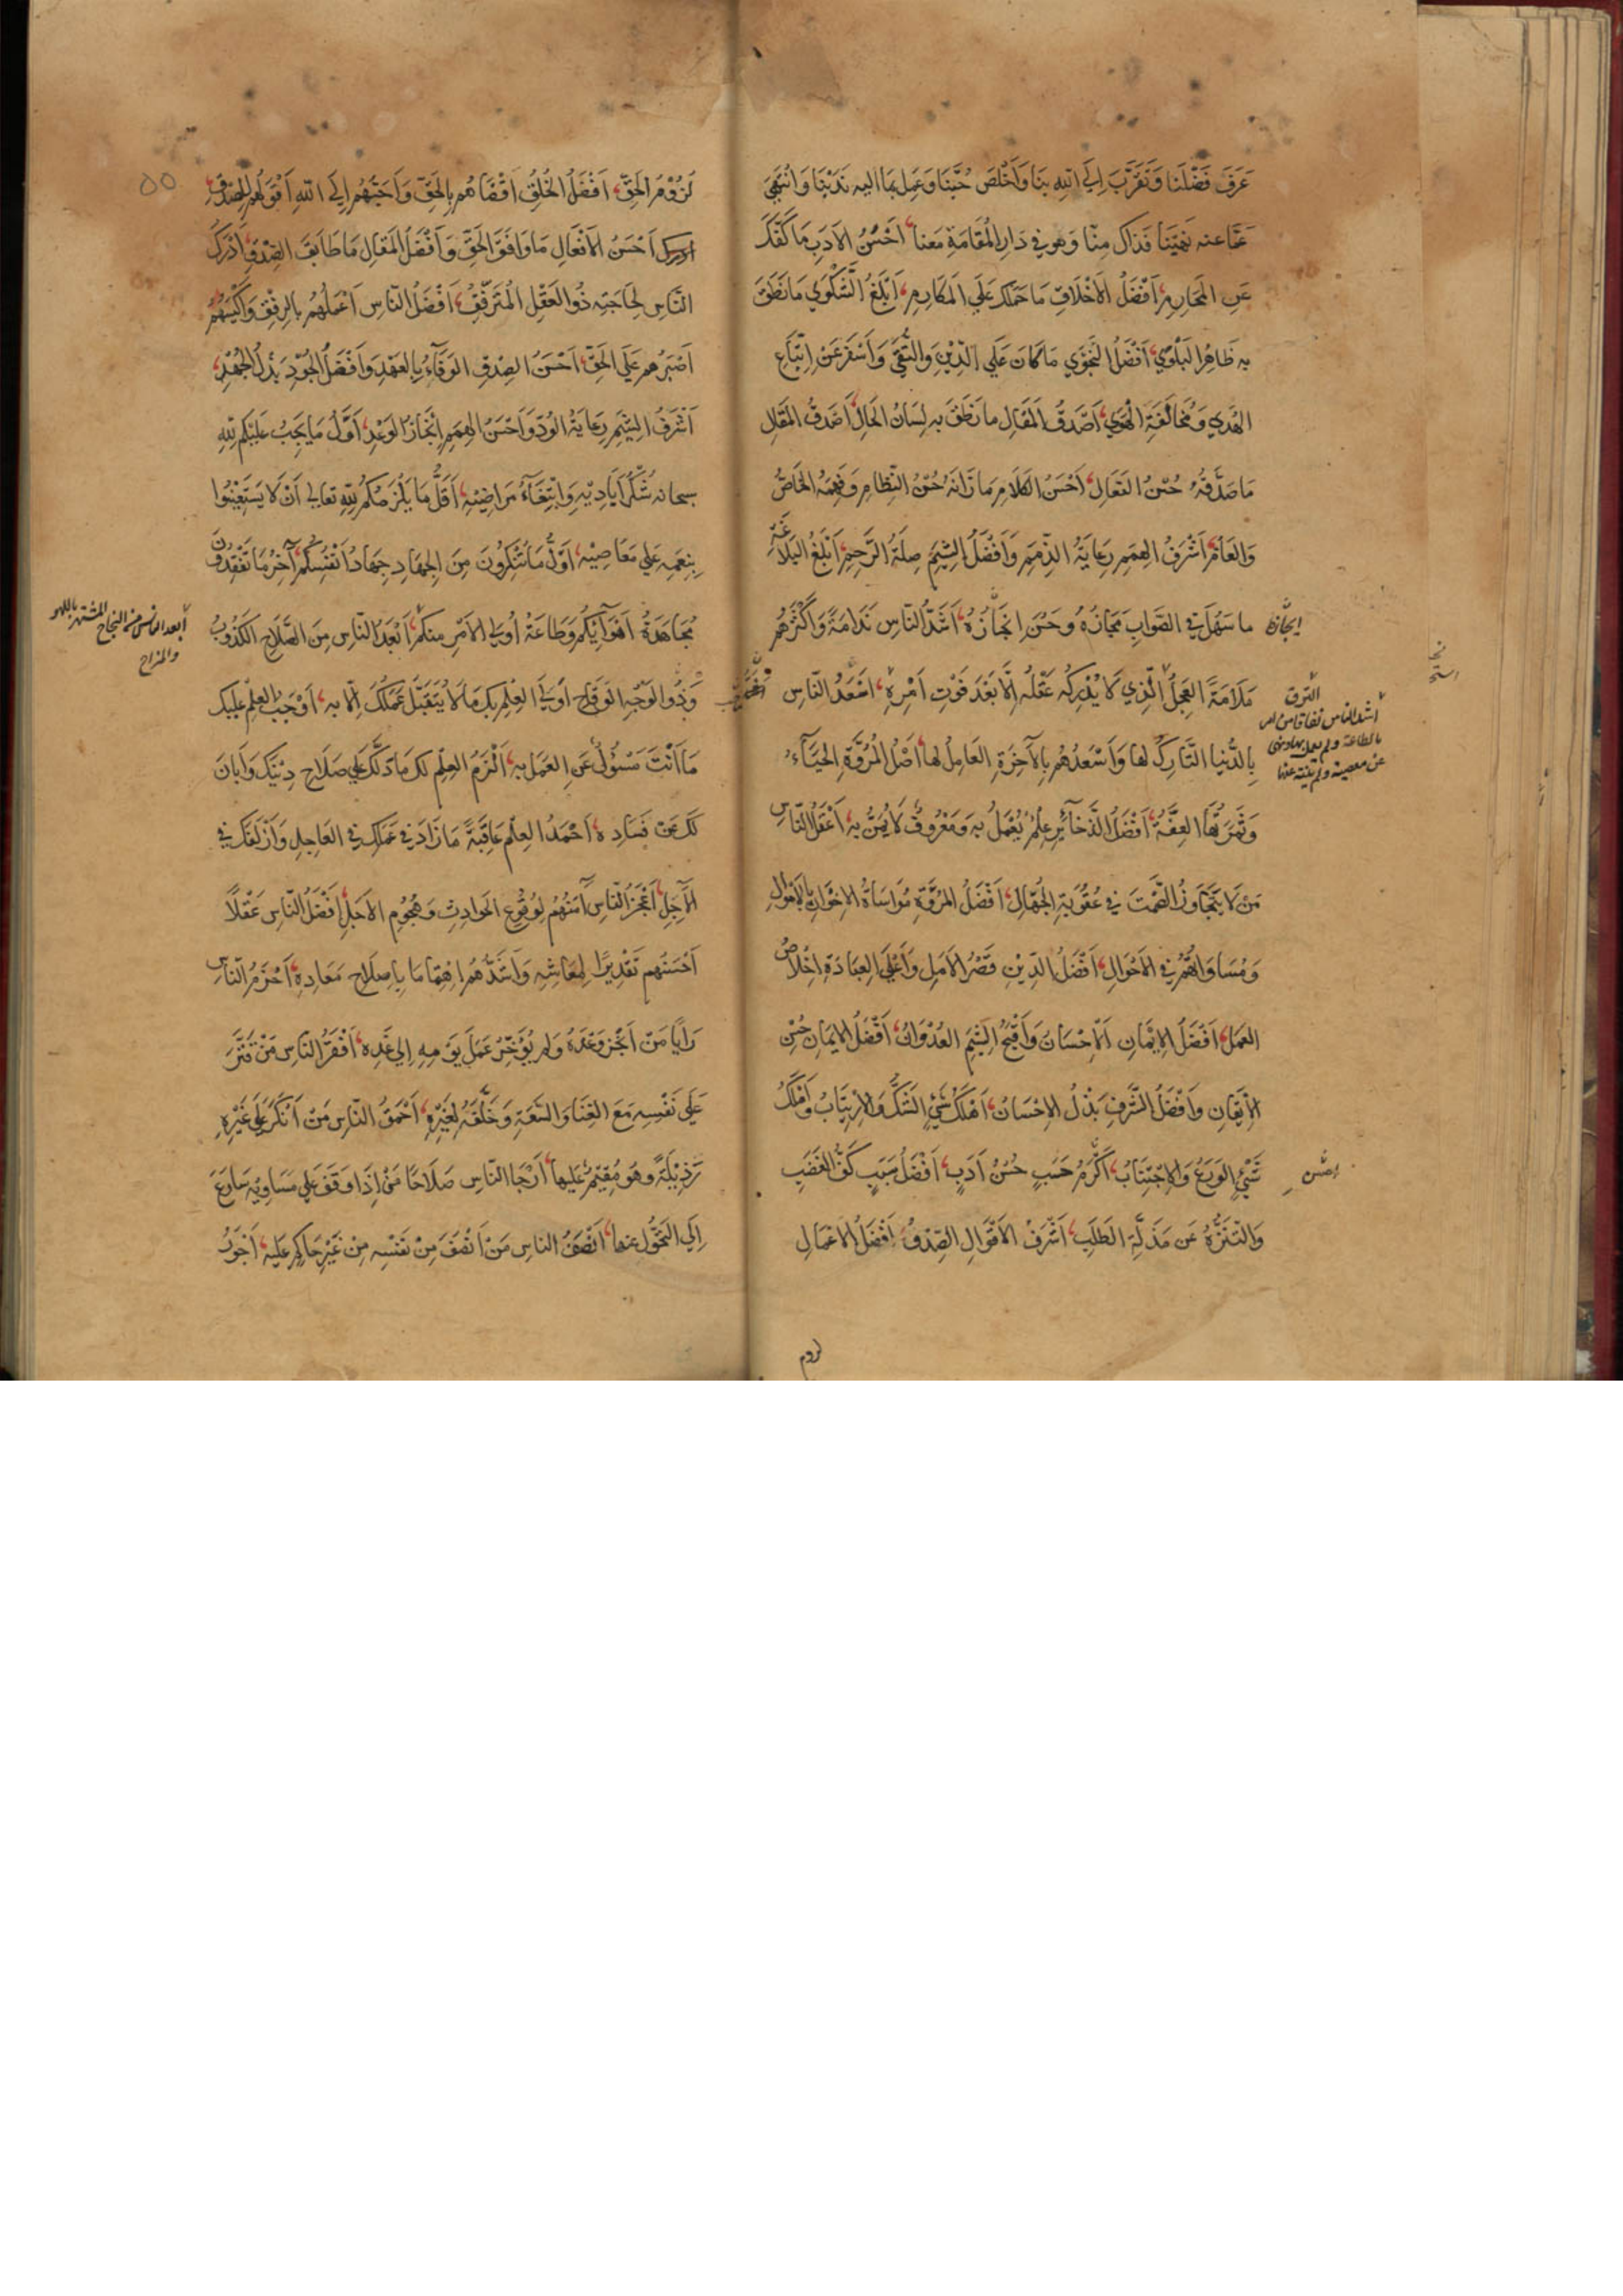 عَرَفَ فَضْلَنَا وَتَقَرَّبَ اِلَي اللهِ بِنَا وَاَخْلَصَ حُبَّنَا وَعَمِلَ بِمَا اليه نَدَبْنَا وَانْتَهَي
عَمَّا عنه نَهَيْنَا فَذَاكَ مِنَّا وَهو في دَارِ الْمُقَامَةِ مَعَنا اَحْسَنُ الاَدَبِ مَا كَفَّكَ
عَنِ المَحَارِمِ اَفْضَلُ الاَخْلَاقِ مَا حَمَلَكَ عَلَي المَكَارِمِ اَبْلَغُ الشَّكْوَي مَا نَطَقَ
بِه ظَاهِرُ البَلْوَي اَفْضَلُ النَّجْوَي مَا كَانَ عَلَي الدِّيْنِ وَالتُّقَي وَاَسْفَرَ عَنْ اِتِّبَاعِ
الهُدَي وَمُخَالَفَةِ الْهَوَي اَصْدَقُ المَقَالِ ما نَطَقَ بِه لِسَانُ الحَالِ اَصْدَقُ المَقَالِ
مَا صَدَّقَهُ حُسْنُ الفَعَالِ اَحْسَنُ الكَلَامِ مَا زَانَهُ حُسْنُ النِّظَامِ وَفَهِمَهُ الخَاصُّ
وَالعَامُّ اَشْرَفُ الهِمَمِ رِعَايَةُ الذِّمَمِ وَاَفْضَلُ الشِّيَمِ صِلَةُ الرَّحِمِ اَبْلَغُ البَلَاغَةِ
ما سَهُلَ في الصَّوَابِ مَجَازُهُ وحَسُنَ اِنجَازُهُ اَشَدُّ النَّاسِ نَدَامَةً وَاَكْثَرُهُم
ايجازه
مَلَامَةً العَجِلُ الَّذِي لَا يُدْرِكُه عَقْلُه اِلَّا بَعْدَ فَوْتِ اَمْرِهِ اَسْعَدُ النَّاسِ
النزق
اشد الناس نفاقا من امر
بالطاعة ولم يعمل بها ونهي
عن معصية ولم ينته عنها
بِالدُّنيا التَّارِكُ لها وَاَسْعَدُهُم بِالآخِرَةِ العَامِلُ لها اَصْلُ المُرُوَّةِ الحَيَآءُ
وَثَمَرَتُهَا العِفَّةُ اَفْضَلُ الذَّخَآئِرِ عِلْمٌ يُعْمَلُ بِه وَمَعْرُوفٌ لَا يُمَنُّ بِه اَعْقَلُ النَّاسِ
مَنْ لَا يَتَجَاوَزُ الصَّمْتَ في عُقُوبَةِ الجُهَّالِ اَفْضَلُ المُرُوَّةِ مُوَاسَاةُ الاِخْوَانِ بِالاَمْوَالِ
وَمُسَاوَاتُهُمْ في الاَحْوَالِ اَفْضَلُ الدِّيْنِ قَصْرُ الاَمَلِ وَاَعْلَي العِبَادَةِ اِخْلَاصُ
العَمَلِ اَفْضَلُ الاِيْمَانِ اَلاِحْسَانُ وَاَقْبَحُ الشِّيَمِ العُدْوَانُ اَفْضَلُ الاِيمَانِ حُسْنُ
الاِيقَانِ وَاَفْضَلُ الشَّرَفِ بَذْلُ الاِحْسَانِ اَهْلَكُ شَيْءٍ الشَّكُّ وَالاِرْتِيَابُ وَاَمْلَكُ
شَيْءٍ الوَرَعُ وَالاِجْتِنَابُ اَكْرَمُ حَسَبٍ حُسْنُ اَدَبٍ اَفْضَلُ سَبَبٍ كَفُّ الغَضَبِ
وَالتَّنَزُّهُ عَن مَذَلَّةِ الطَّلَبِ اَشْرَفُ الاَقْوَالِ الصِّدْقُ اَفْضَلُ الاَعْمَالِ
لزوم
٥٥
لُزُوْمُ الحَقِّ اَفْضَلُ الخَلْقِ اَقْضَاهُم بِالحَقِّ وَاَحَبُّهُم اِلَي اللهِ اَقْوَلُهُم لِلصِّدْقِ
اَحْسَنُ الاَفْعَالِ مَا وَافَقَ الحَقَّ وَاَفْضَلُ المَقَالِ مَا طَابَقَ الصِّدْقَ اَدْرَكُ
النَّاسِ لِحَاجَتِه ذُو العَقْلِ المُتَرَفِّقُ اَفْضَلُ النَّاسِ اَعْمَلُهُم بالرِفْقِ وَاَكْيَسُهُمْ
اَصْبَرُهم عَلَي الحَقِّ اَحْسَنُ الصِدْقِ الوَفَآءُ بِالعَهْدِ وَاَفْضَلُ الجُوْدِ بَذْلُ الجُهْدِ
اَشْرَفُ الشِّيَمِ رِعَايَةُ الوُدِّ وَاَحْسَنُ الهِمَمِ اِنْجَازُ الوَعْدِ اَوَّلُ مَا يَجِبُ عَلَيْكُم لِلّهِ
سبحانه شُكْرُ اَيَادِيْهِ وَابْتِغَآءُ مَرَاضِيْهِ اَقَلُّ مَا يَلْزَمُكُم لِلّهِ تعالي اَنْ لَا يَسْتَعِيْنُوا
بِنِعَمِه عَلي مَعَاصِيْهِ اَوَّلُ مَا تُنْكِرُونَ مِنَ الجِهَادِ جِهَادُ اَنْفُسِكُم آخِرُ مَا تَفْقِدُونَ
مُجَاهَدَةُ اَهْوَآئِكُم وَطَاعَةُ اُولي الاَمْرِ مِنكُم اَبْعَدُ النَّاسِ مِنَ الصَّلَاحِ الكَذُوبُ
ابعد الناس من النجاح المشتهر باللهو
والمزاح
وَذُو الوَجْهِ الوَقَاحِ اَوْلَي العِلْمِ بِكَ مَا لَا يُتَقَبَّلُ عَمَلُكَ اِلّا بِه اَوْجَبُ العِلْمِ عَلَيْكَ
مَا اَنْتَ مَسْئُولٌ عَنِ العَمَلِ بِه اَلْزَمُ العِلْمِ لَكَ مَا دَلَّكَ عَلي صَلَاحِ دِيْنِكَ وَاَبَانَ
لَكَ عَنْ فَسَادِهِ اَحْمَدُ العِلْمِ عَاقِبَةً مَا زَادَ في عَمَلِكَ في العَاجِلِ وَاَزْلَفَكَ في
الآجِلِ اَعْجَزُ النَّاسِ آمَنُهُم لِوُقُوعِ الحَوَادِثِ وَهُجُومِ الاَجَلِ اَفْضَلُ النَّاسِ عَقْلًا
اَحْسَنُهم تَقْدِيرًا لِمَعَاشِهِ وَاَشَدُّهُم اِهْتِمَامًا بِاِصْلَاحِ مَعَادِهِ اَحْزَمُ النَّاسِ
رَاْيًا مَنْ اَنْجَزَ وَعْدَهُ وَلم يُؤَخِّرْ عَمَلَ يَوْمِهِ اِلي غَدِه اَفْقَرُ النَّاسِ مَنْ قَتَّرَ
عَلَي نَفْسِه مَعَ الغِنَا وَالسَّعَةِ وَخَلَّفَهُ لِغَيْرِهِ اَحْمَقُ النَّاسِ مَنْ اَنْكَرَ عَلي غَيْرِهِ
رَذِيْلَةً وهُوَ مُقِيْمٌ عَلَيها اَرْجَا النَّاسِ صَلَاحًا مَنْ اِذَا وَقَفَ عَلي مَسَاوِيْهِ سَارَعَ
اِلَي التَّحَوُّلِ عنها اَنْصَفُ الناسِ مَنْ اَنْصَفَ مِنْ نَفْسِه مِنْ غَيْرِ حَاكِمٍ عَلَيه اَجْوَرُ